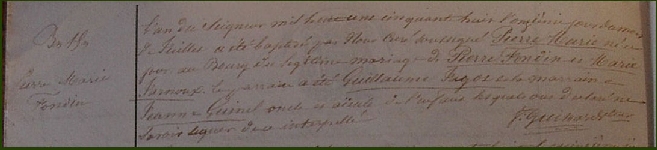 Bapt
Pierre Marie
Fondin
L'an du Seigneur mil huit cent cinquante huit l'onzième jour du mois
de Juillet a été baptisé par Nous Curé soussigné Pierre Marie né ce
jour au Bourg du légitime mariage de Pierre Fondin et Marie
le parrain a été Guillaume et la marraine
Jeanne oncle et aieule de l'enfant lesquels ont déclaré ne
savoir signer de ce interpellé